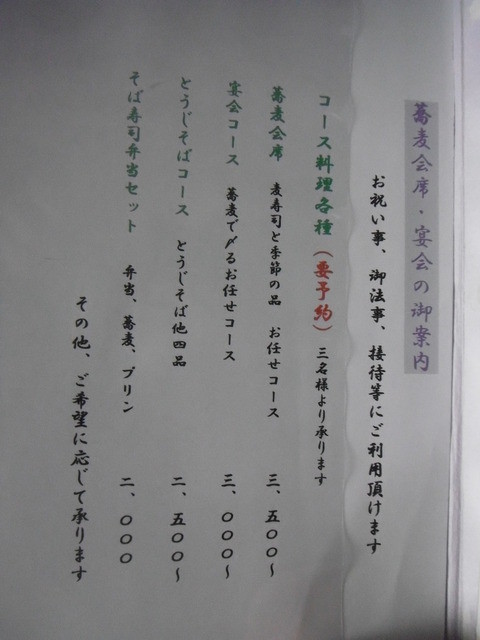 蕎麦会席・宴会の御案内
お祝い事、御法事、接待等にご利用頂けます
コース料理各種(要予約) 三名様より承ります
蕎麦会席 麦寿司と季節の品 お任せコース 三、五〇〇~
宴会コース 蕎麦で〆るお任せコース 三、〇〇〇~
とうじそばコース とうじそば他四品 二、五〇〇~
そば寿司弁当セット 弁当、蕎麦、プリン 二、〇〇〇
その他、ご希望に応じて承ります